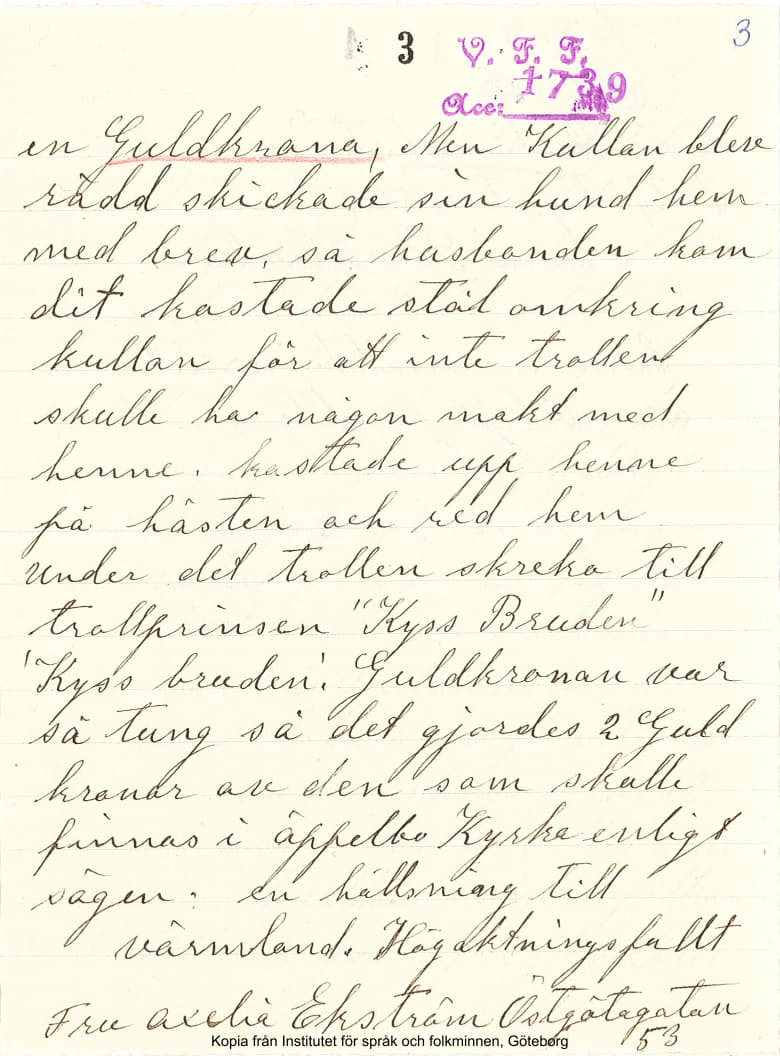 3 V. F. F. 3
1739
Acc:
en Guldkrona, Men Kullan bleve
rädd skickade sin hund hem
med brev, så husbonden kom
dit kastade stål omkring
kullan för att inte trollen
skulle ha någon makt med
henne. kastade upp henne
på hästen och red hem
under det trollen skreko till
trollprinsen "Kyss Bruden"
'Kyss bruden'. Guldkronan var
så tung så det gjordes 2 Guld
kronor av den som skulle
finnas i äppelbo Kyrka enligt
sägen. en hällsning till
värmland. Högaktningsfullt
Fru axelia Ekström Östgötagatan
53
Kopia från Institutet för språk och folkminnen, Göteborg